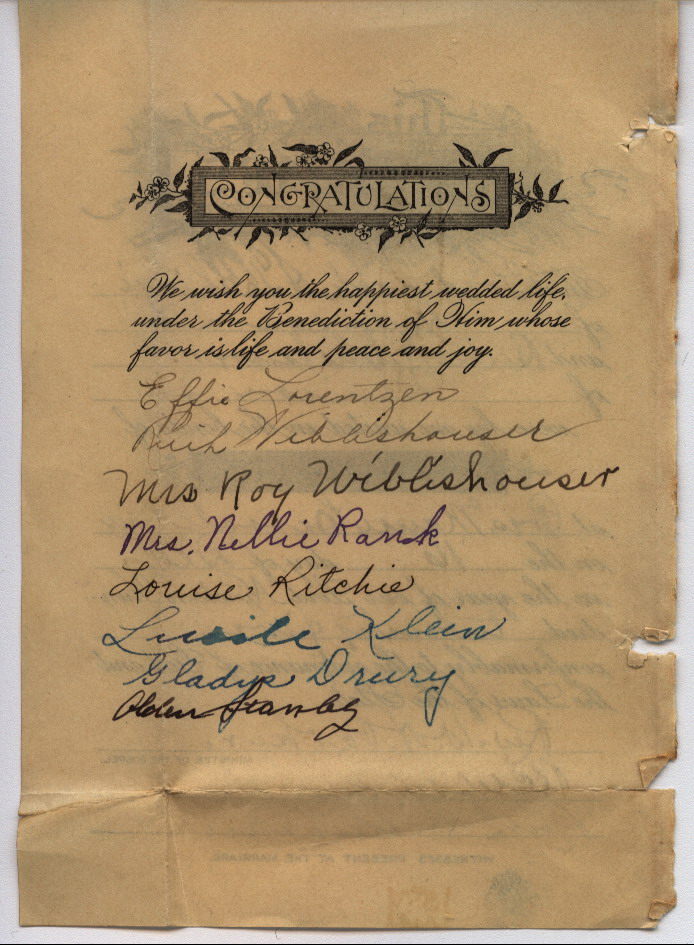 CONGRATULATIONS
We wish you the happiest wedded life,
under the Benediction of Him whose
favor is life and peace and joy.
Effie Lorentzen
Ruth Wiblishouser
Mrs Roy Wiblishouser
Mrs. Nellie Ransk
Louise Ritchie
Lucile Klein
Gladys Drury